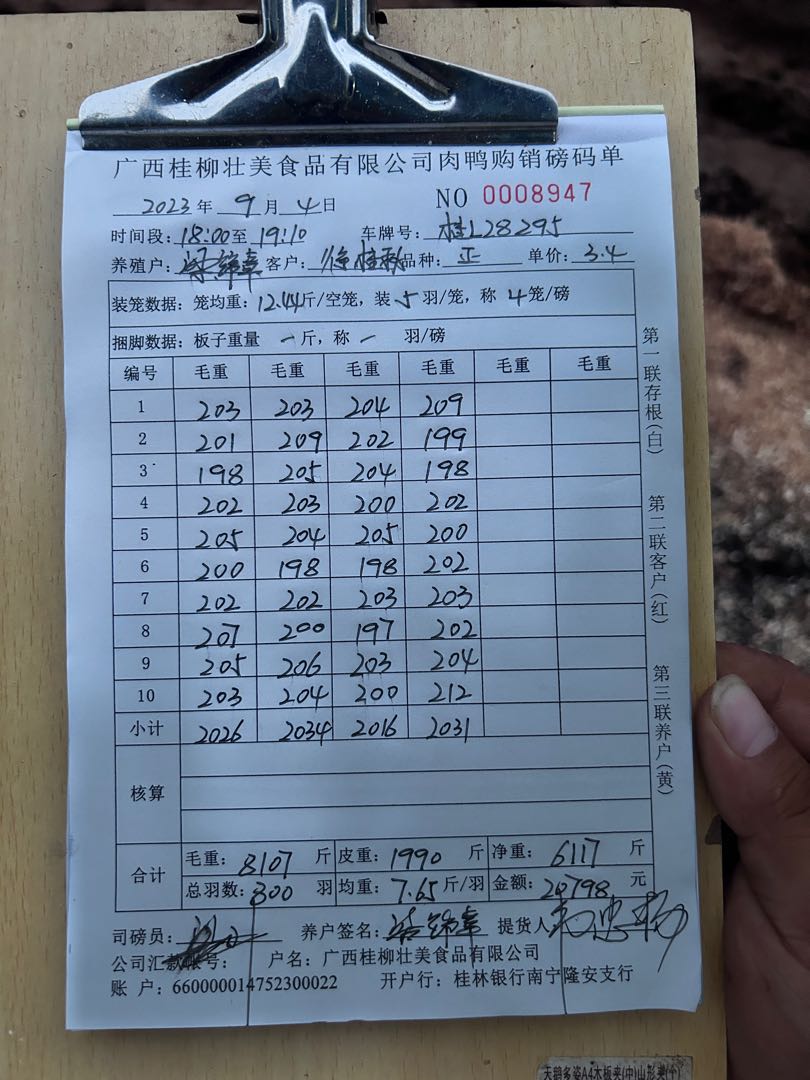 广西桂柳壮美食品有限公司肉鸭购销磅码单
2023年 9月 4日 NO 0008947
时间段：18:00至 19:10 车牌号：桂L28295
养殖户： 客户： 品种：正 单价：3.4
装笼数据：笼均重：12.44斤/空笼，装 5 羽/笼，称 4 笼/磅
捆脚数据：板子重量 一 斤，称 一 羽/磅
编号 毛重 毛重 毛重 毛重 毛重 毛重
1 203 203 204 209
2 201 209 202 199
3 198 205 204 198
4 202 203 200 202
5 205 204 205 200
6 200 198 198 202
7 202 202 203 203
8 207 200 197 202
9 205 206 203 204
10 203 204 200 212
小计 2026 2034 2016 2031
核算
合计 毛重：8107 斤 皮重：1990 斤 净重：6117 斤
总羽数：800 羽 均重：7.65 斤/羽 金额：20798 元
司磅员： 养户签名： 提货人
公司汇款帐号： 户名：广西桂柳壮美食品有限公司
账 户：660000014752300022 开户行：桂林银行南宁隆安支行
第一联存根(白)
第二联客户(红)
第三联养户(黄)
天鹅多姿A4木板夹(中)山形夹(个)